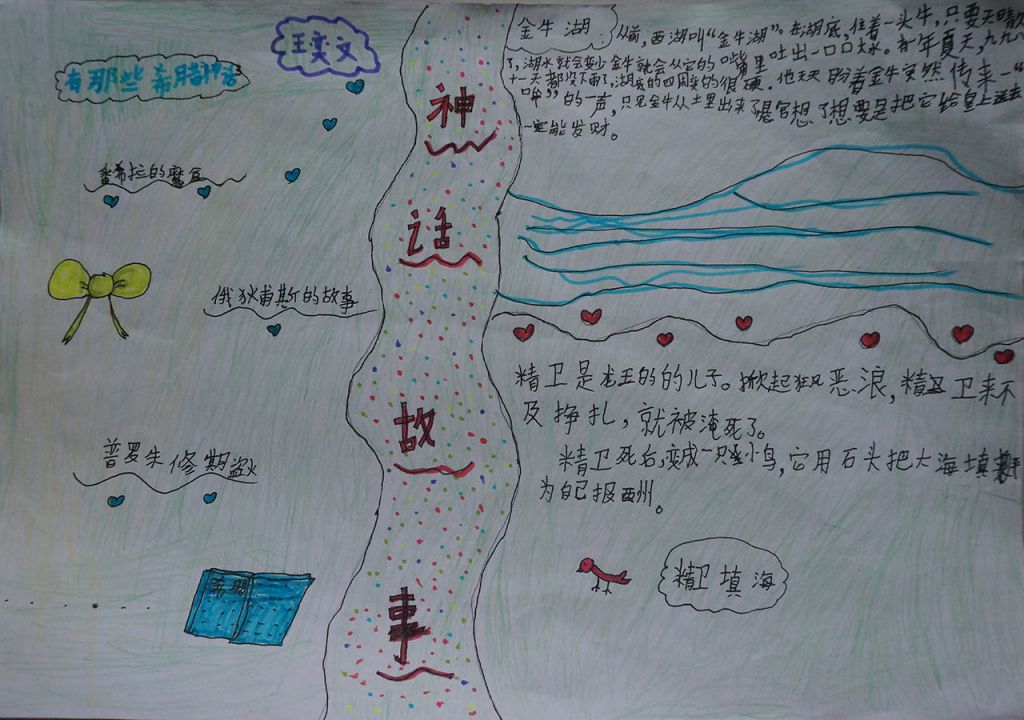 有那些希腊神话
王奕文
潘希拉的魔盒
俄狄甫斯的故事
普罗朱修斯盗火
希腊
神
话
故
事
金牛湖
从前,西湖叫“金牛湖”。在湖底,住着一头牛,只要天晴欲
了,湖水就会变小金牛就会从它的嘴里吐出一口口水。有一年夏天,九九八
十一天都没下雨了,湖底的四周变的很硬。他天天盼着金牛突然传来一“
哞”的一声,只见金牛从土里出来了县官想了想要是把它给皇上送去
一定能发财。
精卫是龙王的的儿子。掀起狂风恶浪,精卫来不
及挣扎,就被淹死了。
精卫死后,变成一只小鸟,它用石头把大海填
为自己报西州。
精卫填海